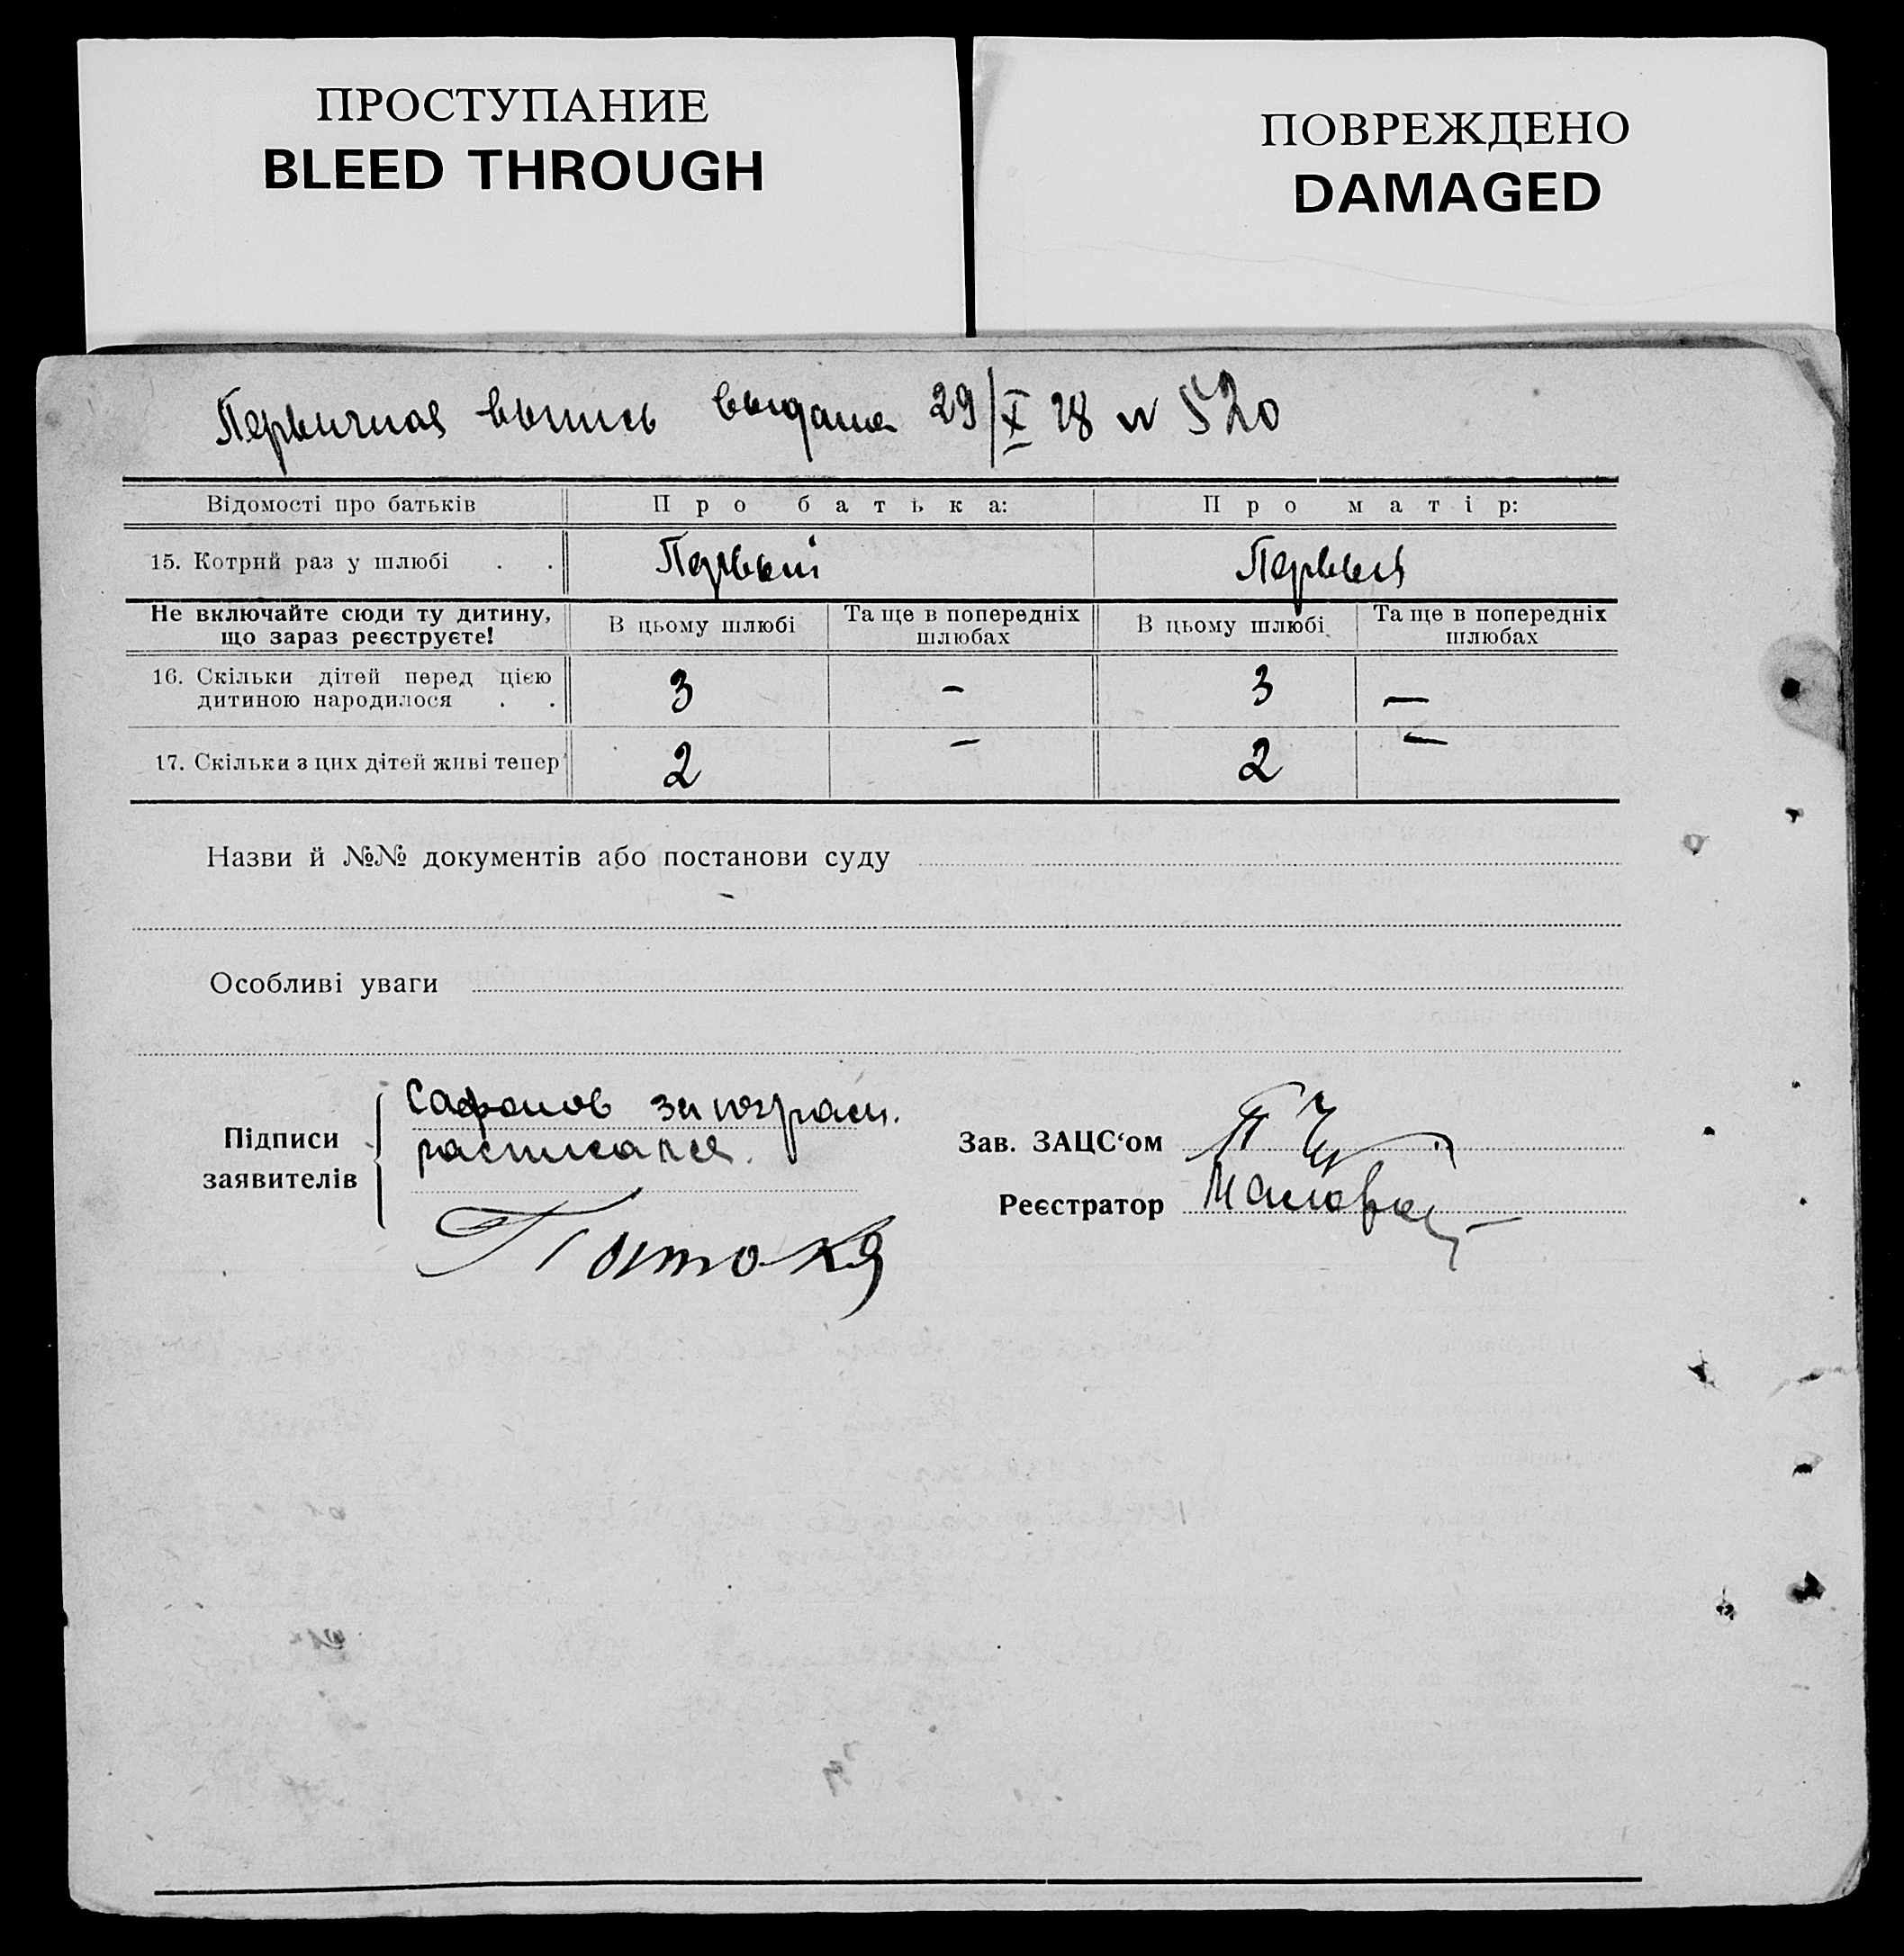 ПРОСТУПАНИЕ
BLEED THROUGH
ПОВРЕЖДЕНО
DAMAGED
Первичная выпись выдана 29/X 28 № 520
Відомості про батьків Про батька: Про матір:
15. Котрий раз у шлюбі . . Первый Первый
Не включайте сюди ту дитину, що зараз реєструєте! В цьому шлюбі Та ще в попередніх шлюбах В цьому шлюбі Та ще в попередніх шлюбах
16. Скільки дітей перед цією дитиною народилося . . 3 - 3 —
17. Скільки з цих дітей живі тепер 2 — 2 —
Назви й №№ документів або постанови суду
-
Особливі уваги
Підписи заявителів
Сафонов за неграм.
расписался.
Зав. ЗАЦС‘ом
Реєстратор